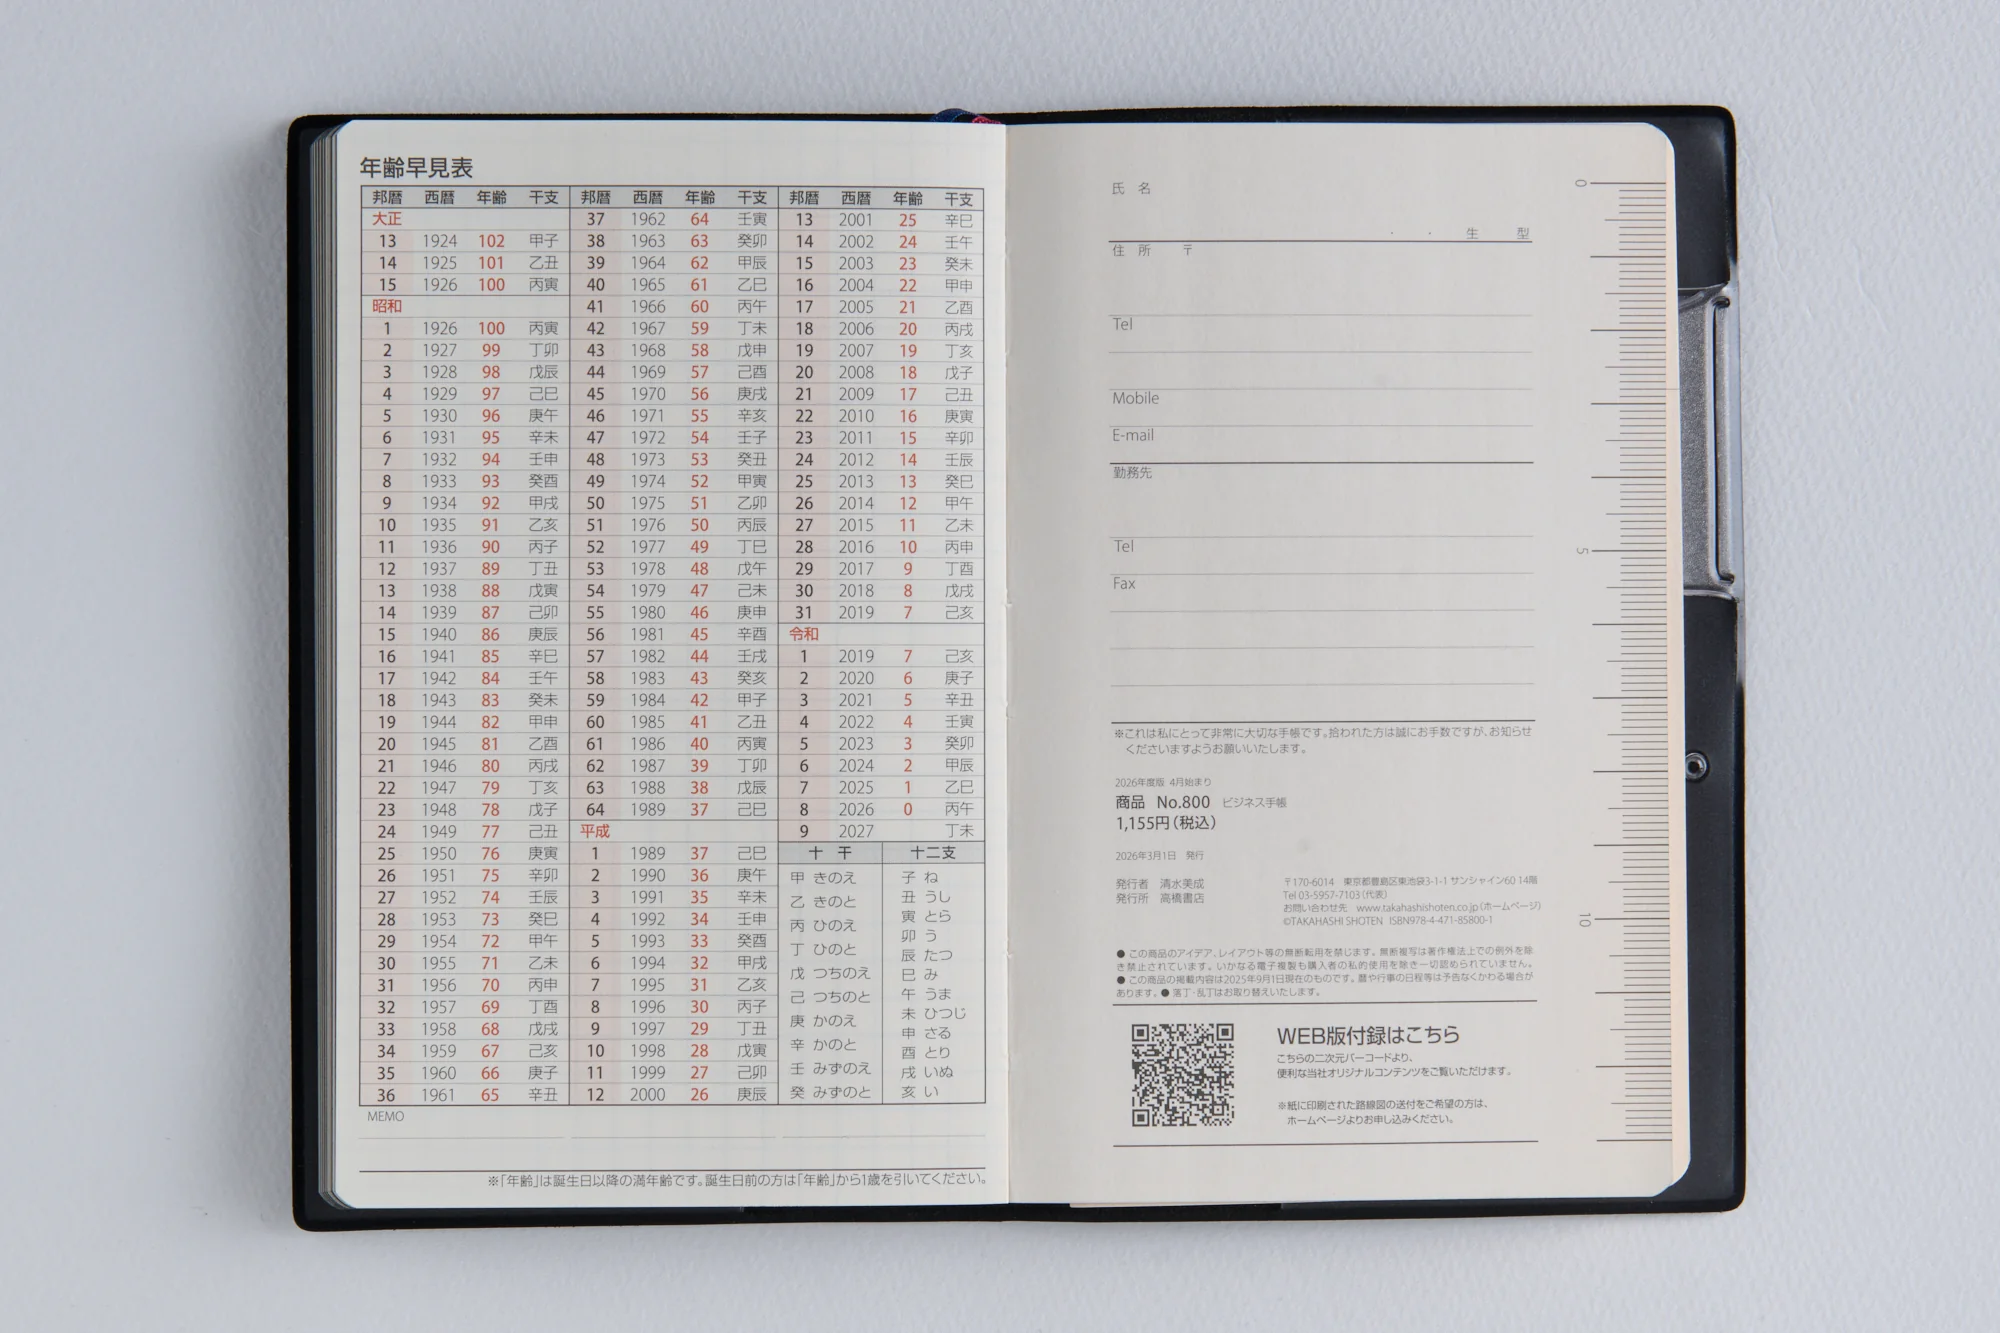 年齢早見表
邦暦 西暦 年齢 干支
大正
13 1924 102 甲子
14 1925 101 乙丑
15 1926 100 丙寅
昭和
1 1926 100 丙寅
2 1927 99 丁卯
3 1928 98 戊辰
4 1929 97 己巳
5 1930 96 庚午
6 1931 95 辛未
7 1932 94 壬申
8 1933 93 癸酉
9 1934 92 甲戌
10 1935 91 乙亥
11 1936 90 丙子
12 1937 89 丁丑
13 1938 88 戊寅
14 1939 87 己卯
15 1940 86 庚辰
16 1941 85 辛巳
17 1942 84 壬午
18 1943 83 癸未
19 1944 82 甲申
20 1945 81 乙酉
21 1946 80 丙戌
22 1947 79 丁亥
23 1948 78 戊子
24 1949 77 己丑
25 1950 76 庚寅
26 1951 75 辛卯
27 1952 74 壬辰
28 1953 73 癸巳
29 1954 72 甲午
30 1955 71 乙未
31 1956 70 丙申
32 1957 69 丁酉
33 1958 68 戊戌
34 1959 67 己亥
35 1960 66 庚子
36 1961 65 辛丑
邦暦 西暦 年齢 干支
37 1962 64 壬寅
38 1963 63 癸卯
39 1964 62 甲辰
40 1965 61 乙巳
41 1966 60 丙午
42 1967 59 丁未
43 1968 58 戊申
44 1969 57 己酉
45 1970 56 庚戌
46 1971 55 辛亥
47 1972 54 壬子
48 1973 53 癸丑
49 1974 52 甲寅
50 1975 51 乙卯
51 1976 50 丙辰
52 1977 49 丁巳
53 1978 48 戊午
54 1979 47 己未
55 1980 46 庚申
56 1981 45 辛酉
57 1982 44 壬戌
58 1983 43 癸亥
59 1984 42 甲子
60 1985 41 乙丑
61 1986 40 丙寅
62 1987 39 丁卯
63 1988 38 戊辰
64 1989 37 己巳
平成
1 1989 37 己巳
2 1990 36 庚午
3 1991 35 辛未
4 1992 34 壬申
5 1993 33 癸酉
6 1994 32 甲戌
7 1995 31 乙亥
8 1996 30 丙子
9 1997 29 丁丑
10 1998 28 戊寅
11 1999 27 己卯
12 2000 26 庚辰
邦暦 西暦 年齢 干支
13 2001 25 辛巳
14 2002 24 壬午
15 2003 23 癸未
16 2004 22 甲申
17 2005 21 乙酉
18 2006 20 丙戌
19 2007 19 丁亥
20 2008 18 戊子
21 2009 17 己丑
22 2010 16 庚寅
23 2011 15 辛卯
24 2012 14 壬辰
25 2013 13 癸巳
26 2014 12 甲午
27 2015 11 乙未
28 2016 10 丙申
29 2017 9 丁酉
30 2018 8 戊戌
31 2019 7 己亥
令和
1 2019 7 己亥
2 2020 6 庚子
3 2021 5 辛丑
4 2022 4 壬寅
5 2023 3 癸卯
6 2024 2 甲辰
7 2025 1 乙巳
8 2026 0 丙午
9 2027 丁未
十 干
甲 きのえ
乙 きのと
丙 ひのえ
丁 ひのと
戊 つちのえ
己 つちのと
庚 かのえ
辛 かのと
壬 みずのえ
癸 みずのと
十二支
子 ね
丑 うし
寅 とら
卯 う
辰 たつ
巳 み
午 うま
未 ひつじ
申 さる
酉 とり
戌 いぬ
亥 い
MEMO
※「年齢」は誕生日以降の満年齢です。誕生日前の方は「年齢」から1歳を引いてください。
氏 名
・ ・ 生 型
住 所 〒
Tel
Mobile
E-mail
勤務先
Tel
Fax
※これは私にとって非常に大切な手帳です。拾われた方は誠にお手数ですが、お知らせ
くださいますようお願いいたします。
2026年度版 4月始まり
商品 No.800 ビジネス手帳
1,155円(税込)
2026年3月1日 発行
発行者 清水美成
発行所 高橋書店
〒170-6014 東京都豊島区東池袋3-1-1 サンシャイン60 14階
Tel 03-5957-7103(代表)
お問い合わせ先 www.takahashishoten.co.jp(ホームページ)
©TAKAHASHI SHOTEN ISBN978-4-471-85800-1
● この商品のアイデア、レイアウト等の無断転用を禁じます。無断複写は著作権法上での例外を除
き禁止されています。いかなる電子複製も購入者の私的使用を除き一切認められていません。
● この商品の掲載内容は2025年9月1日現在のものです。暦や行事の日程等は予告なくかわる場合が
あります。● 落丁・乱丁はお取り替えいたします。
WEB版付録はこちら
こちらの二次元バーコードより、
便利な当社オリジナルコンテンツをご覧いただけます。
※紙に印刷された路線図の送付をご希望の方は、
ホームページよりお申し込みください。
0
5
10